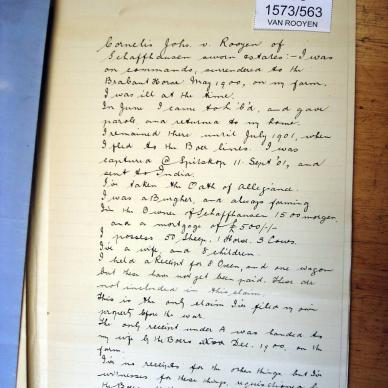 1573/563
VAN ROOYEN
Cornelis Joh. v. Rooyen of
Schaffhausen sworn states:- I was
on commando, surrendered to the
Brabant Horse May 1900, on my farm.
I was ill at the time.
In June I came to h'b'd, and gave
parole and returned to my home.
I remained there until July 1901, when
I fled to the Boer lines. I was
captured @ Spitskop 11 Sept '01, and
sent to India.
I've taken the Oath of Allegiance.
I was a Burgher, and always farming
I'm the Owner of Schaffhausen 1500 morgen
and a mortgage of £500/-/-
I possess 50 Sheep, 1 Horse, 3 Cows.
I've a wife and 8 children.
I held a Receipt for 8 Oxen, and one wagon
but these have not yet been paid. These are
not included in this claim.
This is the only claim I've filed in my own
property before the war.
The only receipt under A was handed to
my wife by the Boers Dec. 1900, on the
farm.
I've no receipts for the other things but I've
witnesses for these things, requisitioned by
the Boers